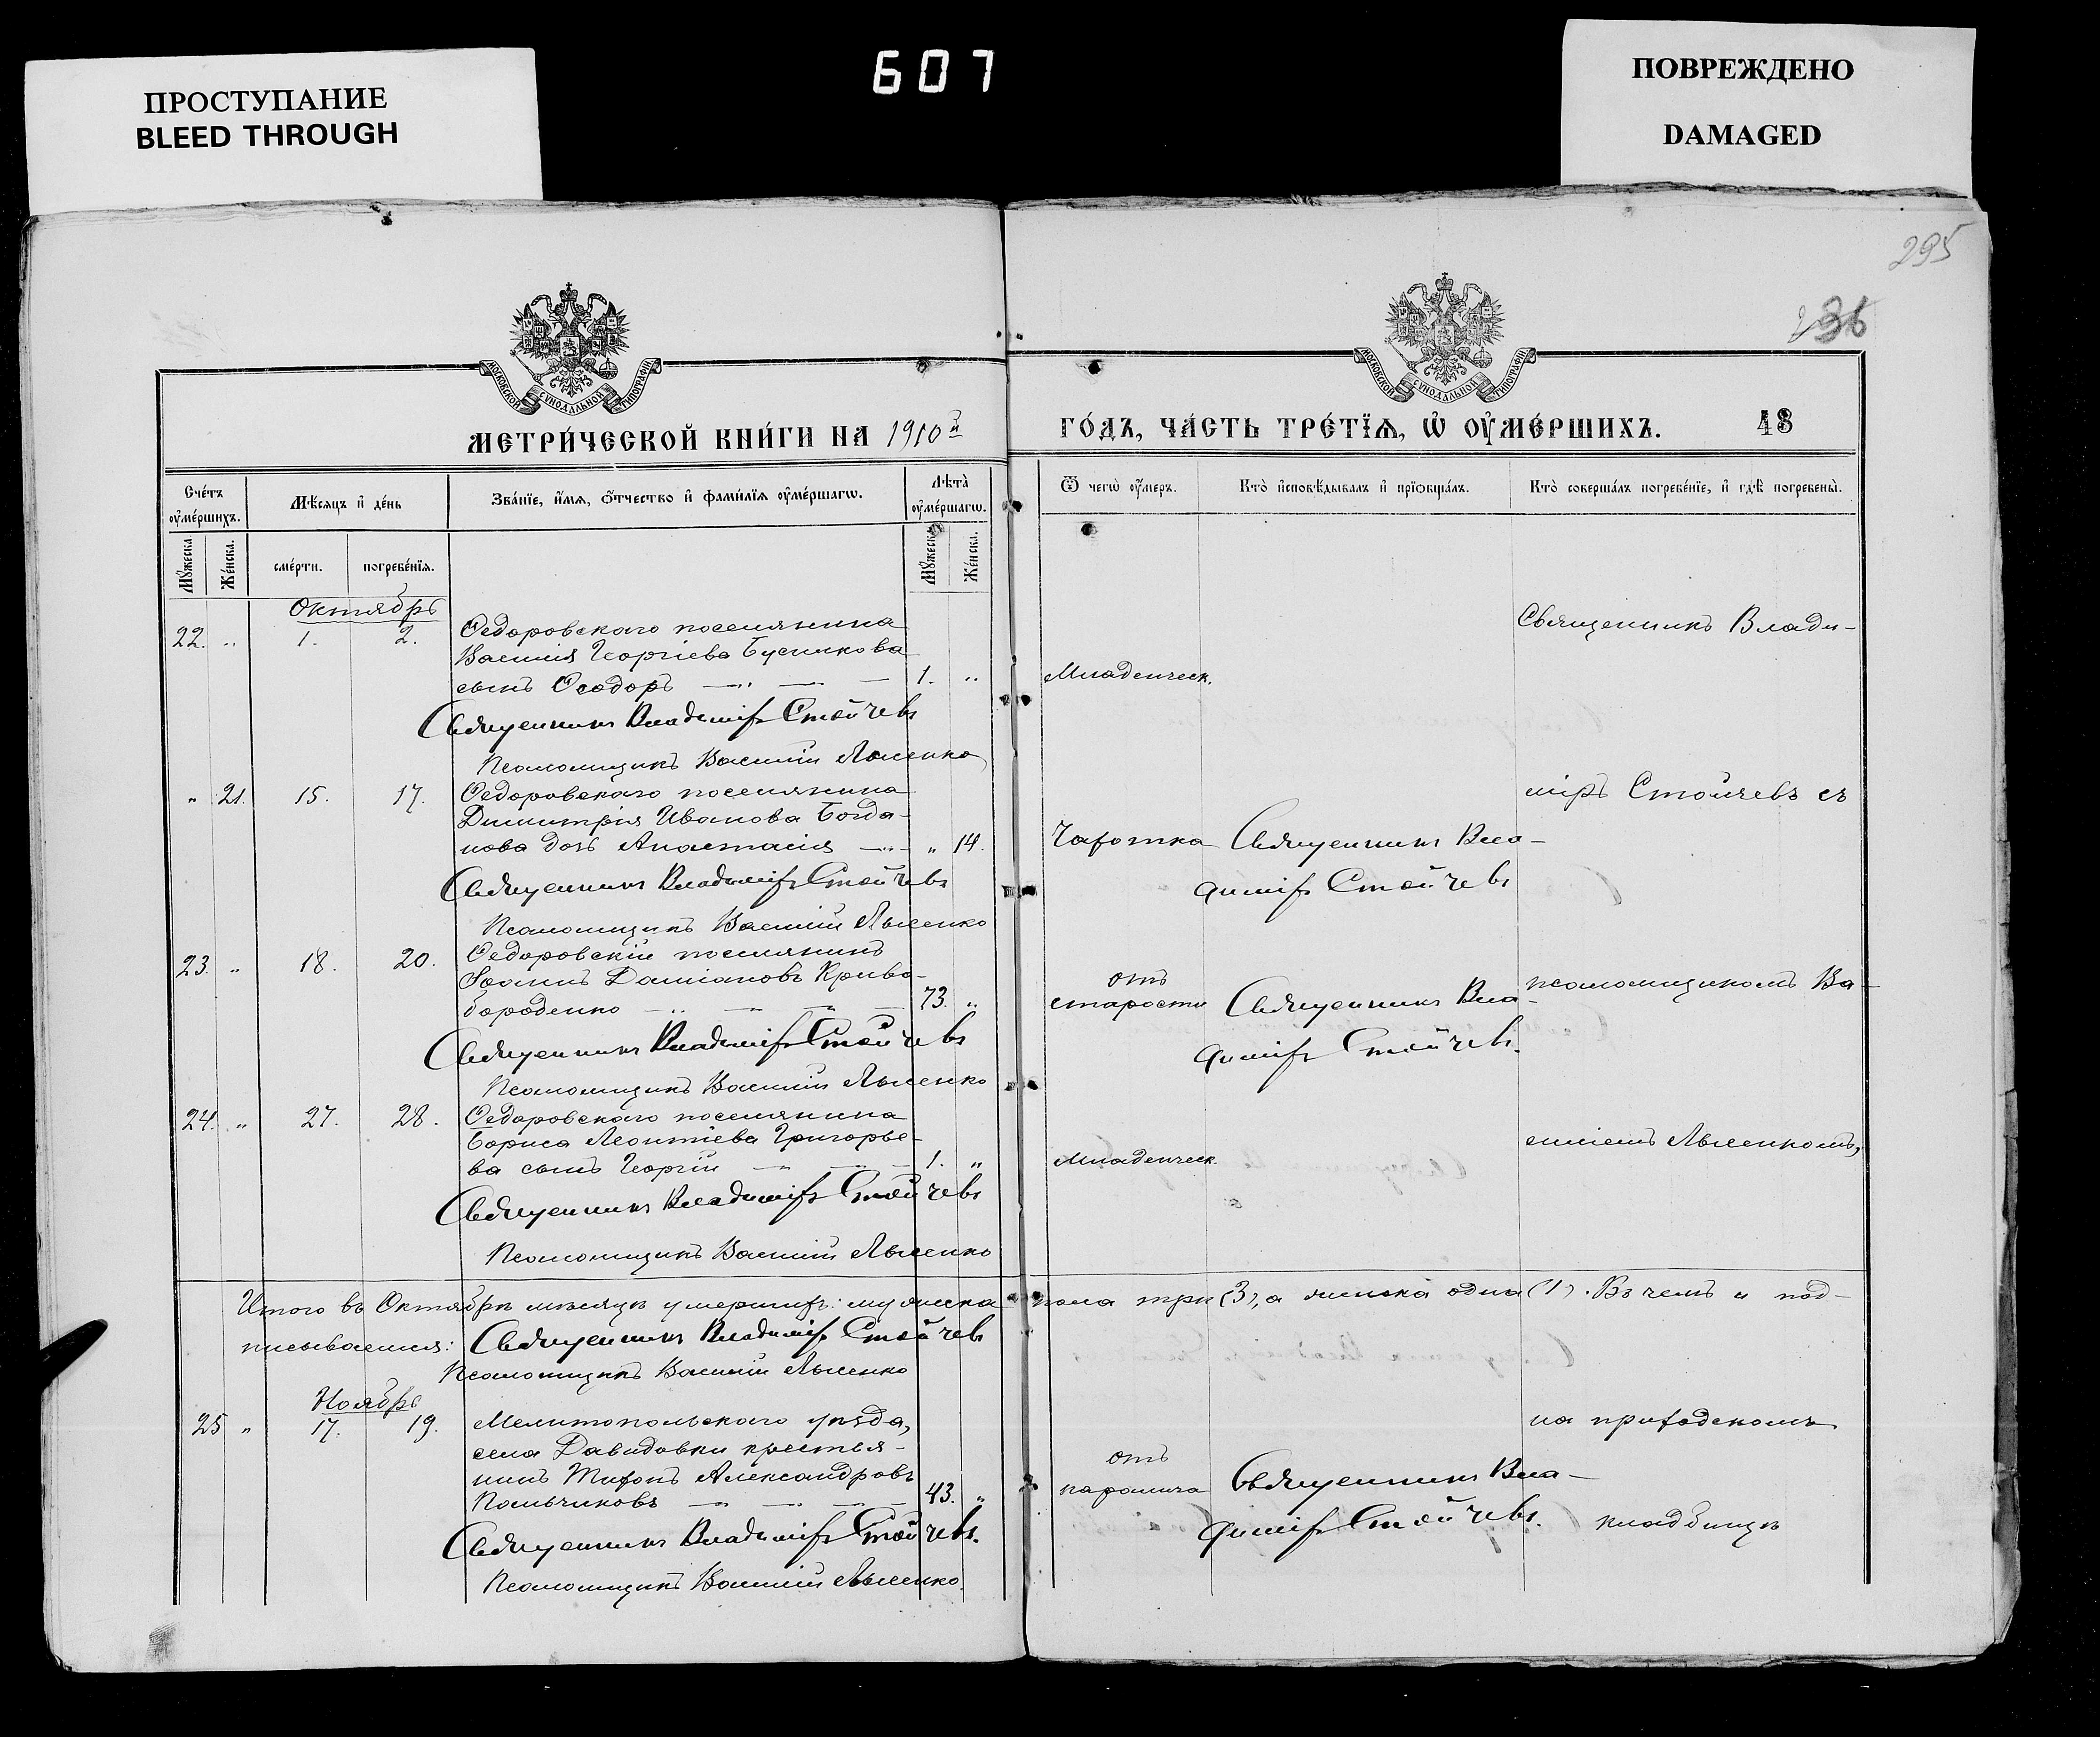 ПРОСТУПАНИЕ
BLEED THROUGH
607
ПОВРЕЖДЕНО
DAMAGED
295
236
МОСКОВСКОЙ СѴНОДАЛЬНОЙ ТИПОГРАФІИ
МОСКОВСКОЙ СѴНОДАЛЬНОЙ ТИПОГРАФІИ
МЕТРИ́ЧЕСКОЙ КНИ́ГИ НА 1910й
ГО́ДЪ, ЧА́СТЬ ТРЕ́ТЇѦ, Ѡ҆ ОУ҆МЕ́РШИХЪ. 48
Сче́тъ оу҆ме́ршихъ.
Мѣ́сѧцъ и҆ де́нь
Зва́нїе, и҆́мѧ, ѻ҆́тчество и҆ фами́лїѧ оу҆ме́ршагѡ.
Лѣ́та оу҆ме́ршагѡ.
Ѿ чегѡ̀ оу҆́меръ.
Кто̀ и҆сповѣ́дывалъ и҆ прїѡбща́лъ.
Кто̀ соверша́лъ погребе́нїе, и҆ гдѣ̀ погребены̀.
Мꙋ́жеска.
Же́нска.
сме́рти.
погребе́нїѧ.
Мꙋ́жеска.
Же́нска.
Октябрь
22. „ 1. 2. Ѳедоровскаго поселянина
Василія Георгіева Бусикова
сынъ Ѳеодоръ 1. „ Младенческ.
Священникъ Влади-
Священникъ Владиміръ Стойчевъ
Псаломщикъ Василій Лысенко
„ 21. 15. 17. Ѳедоровскаго поселянина
Димитрія Иванова Богда-
нова дочь Анастасія „ 14. Чахотка Священникъ Вла-
диміръ Стойчевъ
міръ Стойчевъ съ
Священникъ Владиміръ Стойчевъ
Псаломщикъ Василій Лысенко
23. „ 18. 20. Ѳедоровскій поселянинъ
Іоаннъ Даміановъ Криво-
бороденко 73. „ отъ старости Священникъ Вла-
диміръ Стойчевъ.
псаломщикомъ Ва-
Священникъ Владиміръ Стойчевъ
Псаломщикъ Василій Лысенко
24. „ 27. 28. Ѳедоровскаго поселянина
Бориса Леонтіева Григорье-
ва сынъ Георгій 1. „ Младенческ.
силіемъ Лысенкомъ,
Священникъ Владиміръ Стойчевъ
Псаломщикъ Василій Лысенко
Итого въ Октябрѣ мѣсяцѣ умершихъ: мужеска пола три (3), а женска одна (1). Въ чемъ и под-
писываемся: Священникъ Владиміръ Стойчевъ
Псаломщикъ Василій Лысенко
Ноябрь
25 „ 17. 19. Мелитопольскаго уѣзда,
села Давидовки крестья-
нинъ Тихонъ Александровъ
Пальчиковъ 43. „ отъ паралича Священникъ Вла-
диміръ Стойчевъ.
на приходскомъ
кладбищѣ
Священникъ Владиміръ Стойчевъ.
Псаломщикъ Василій Лысенко.